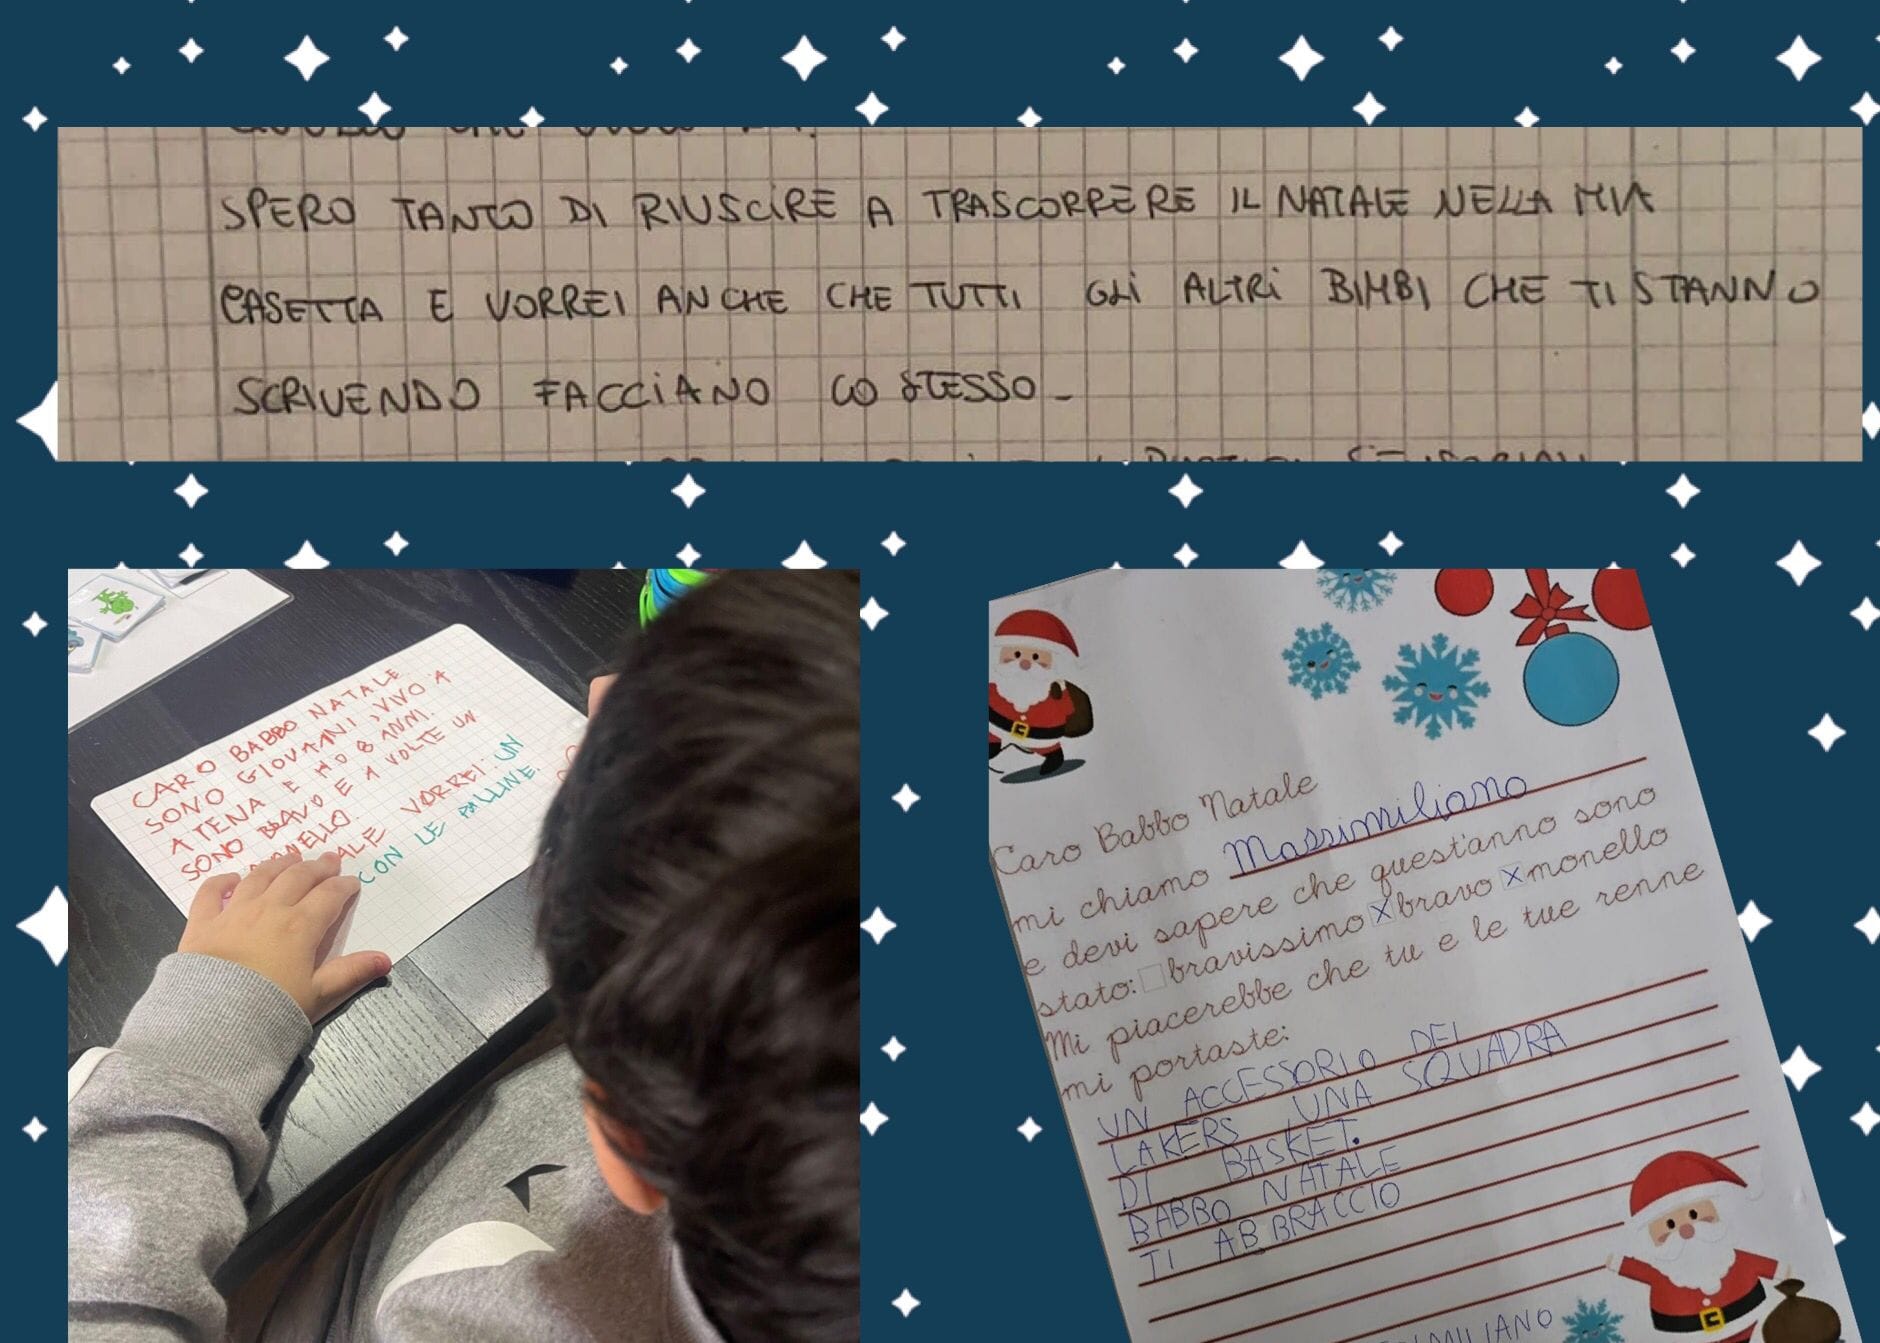 SPERO TANTO DI RIUSCIRE A TRASCORRERE IL NATALE NELLA MIA
CASETTA E VORREI ANCHE CHE TUTTI GLI ALTRI BIMBI CHE TI STANNO
SCRIVENDO FACCIANO LO STESSO
CARO BABBO NATALE
SONO GIOVANNI VIVO A
ATENA E HO 8 ANNI.
SONO BRAVO E A VOLTE UN
VORREI: UN
CON LE PALLINE.
Caro Babbo Natale
mi chiamo Massimiliano
e devi sapere che quest'anno sono
stato: bravissimo X bravo X monello
Mi piacerebbe che tu e le tue renne
mi portaste:
UN ACCESSORIO DEI
LAKERS UNA SQUADRA
DI BASKET.
BABBO NATALE
TI ABBRACCIO